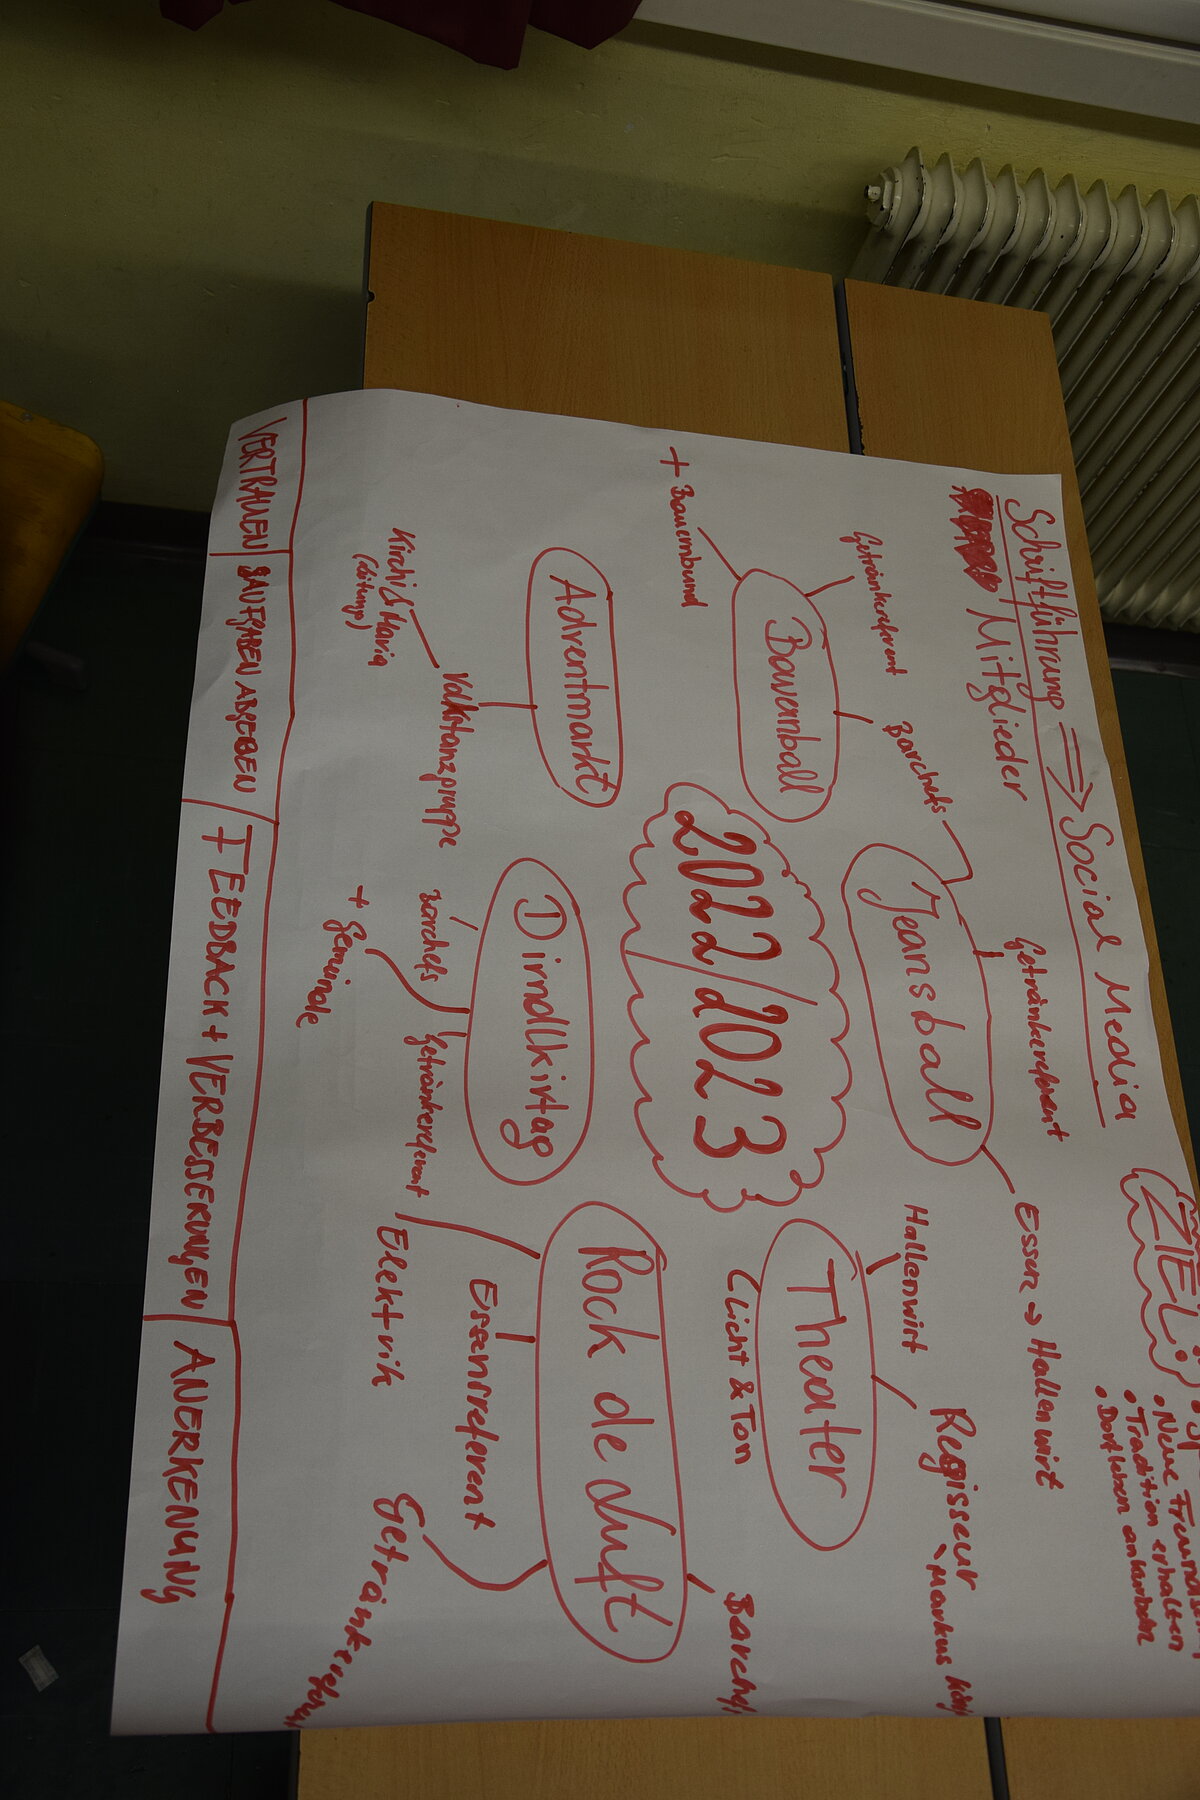 Schriftführung ⇒ Social Media
Mitglieder
ZIEL:
• Neue
• Tradition erhalten
• Dorfleben ankurbeln
Getränkereferent
Barchefs
Getränkereferent
Essen → Hallenwirt
+ Bauernbund
Bauernball
Jeansball
Hallenwirt
Regisseur
Markus
Theater
Licht & Ton
2022/2023
Adventmarkt
Dirndlkirtag
Rock de duft
Volkstanzgruppe
Kirchi & Maria
Barchefs
Getränkereferent
+ Gemeinde
Essensreferent
Elektrik
VERTRAUEN
AUFGABEN ABGEBEN
FEEDBACK + VERBESSERUNGEN
ANERKENUNG